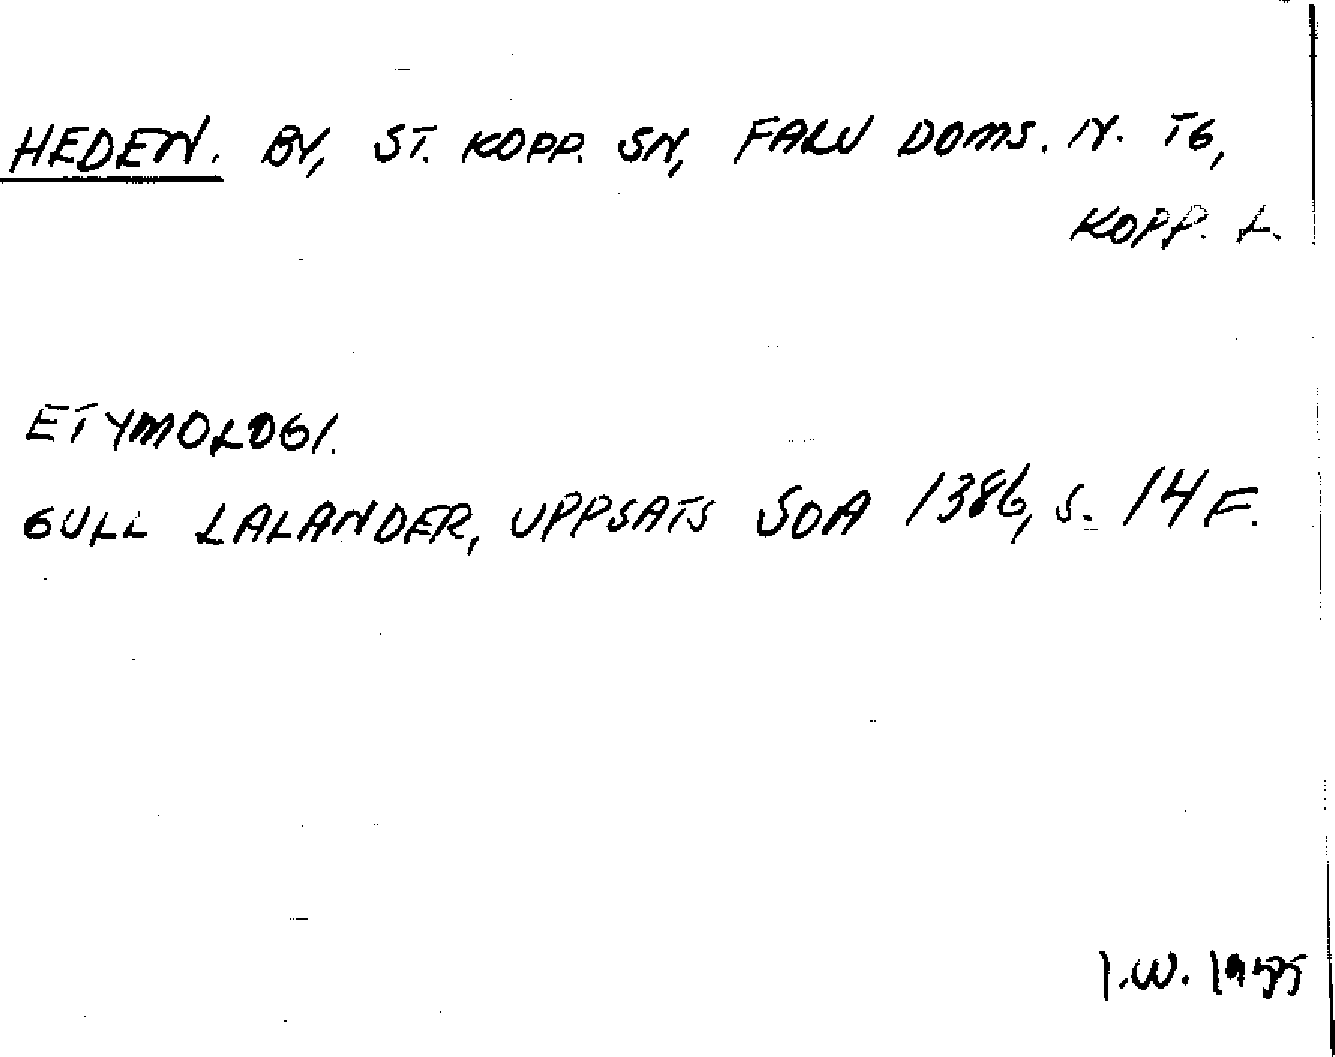 HEDEN. BY, ST. KOPP. SN, FALU DOMS. N. TG,
KOPP. L.
ETYMOLOGI.
GULL LALANDER, UPPSATS SOA 1386, S. 14 F.
I.W.